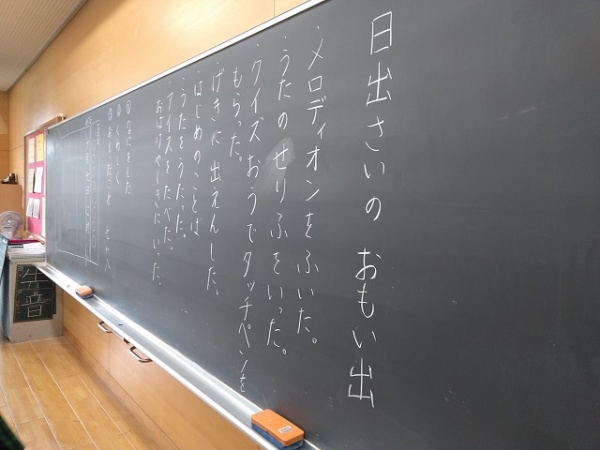 日出さいの おもい出
・メロディオンをふいた。
・うたのせりふをいった。
・クイズおうでタッチペンを
もらった。
・げきに出えんした。
はじめのことば
・うたをうたった。
アイスをたべた。
おばけやしきにいった。
①なにをした
②くわしく